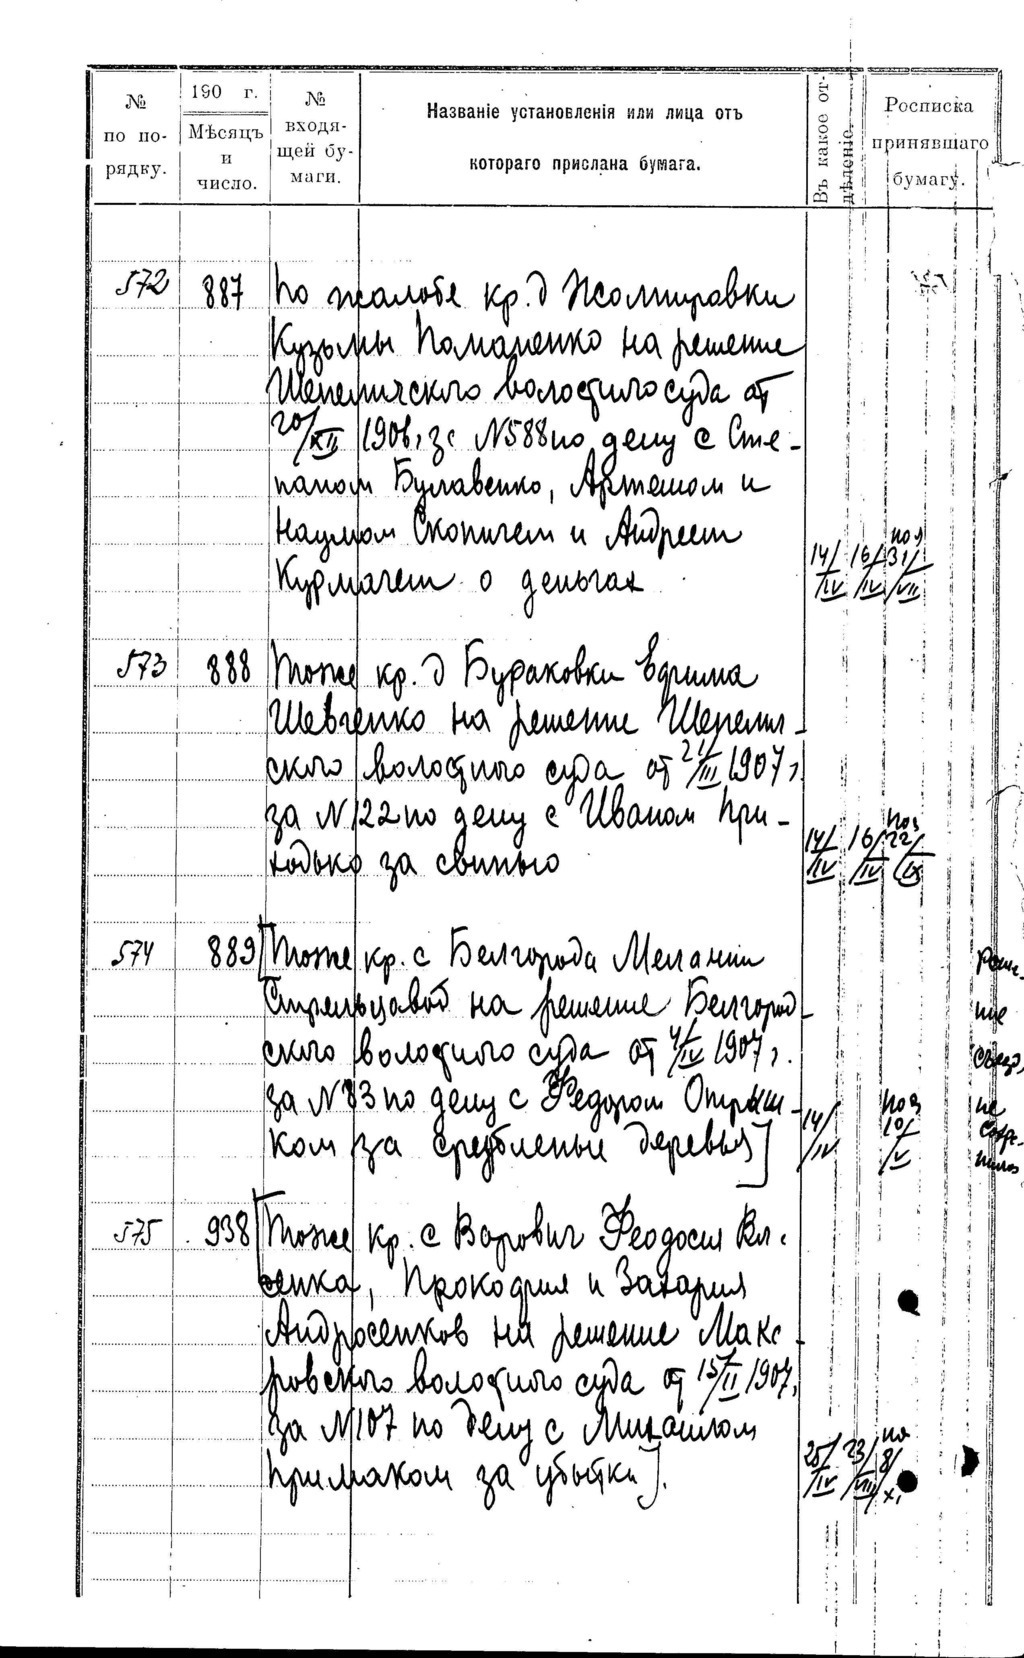 № по по- рядку.
190 г. Мѣсяцъ и число.
№ входя- щей бу- маги.
Названіе установленія или лица отъ
котораго прислана бумага.
Въ какое от- дѣленіе.
Росписка принявшаго бумагу.
572 887 По жалобе кр. д
Кузьмы на решение
волостного суда от
20/XII 1906 г. за № 588 по делу с Сте-
паном Булавенко, Артемом и
Наумом Скопичем и Андреем
Курмачем о деньгах
14/IV 16/IV 31/VII
573 888 Тоже кр. д Бураковки Ефима
Шевченко на решение Шепелич-
ского волостного суда от 21/III 1907 г.
за № 122 по делу с Иваном При-
ходько за свинью
14/IV 16/IV 22/IX
574 889 [Тоже кр. с Белгорода Мелании
Стрельцавой на решение Белгород-
ского волостного суда от 4/IV 1907 г.
за № 83 по делу с Федором
ком за срубленые деревья]
14/IV 10/V
Реше-
ние
съезд.
не
575 938 [Тоже кр. с Варович Феодосия Вл.
сенка, Прокофия и Захария
Андросенков на решение Мака-
ровского волостного суда от 15/II 1907 г.
за № 107 по делу с Михаилом
Примаком за убытки].
25/IV 23/VII 8/XI